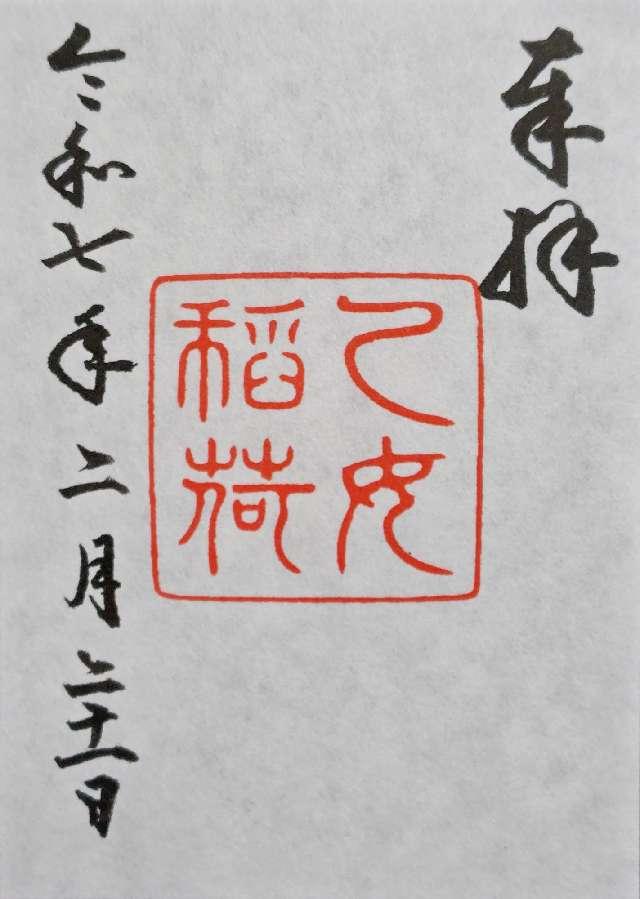 奉拝
乙女
稲荷
令和七年二月二十一日